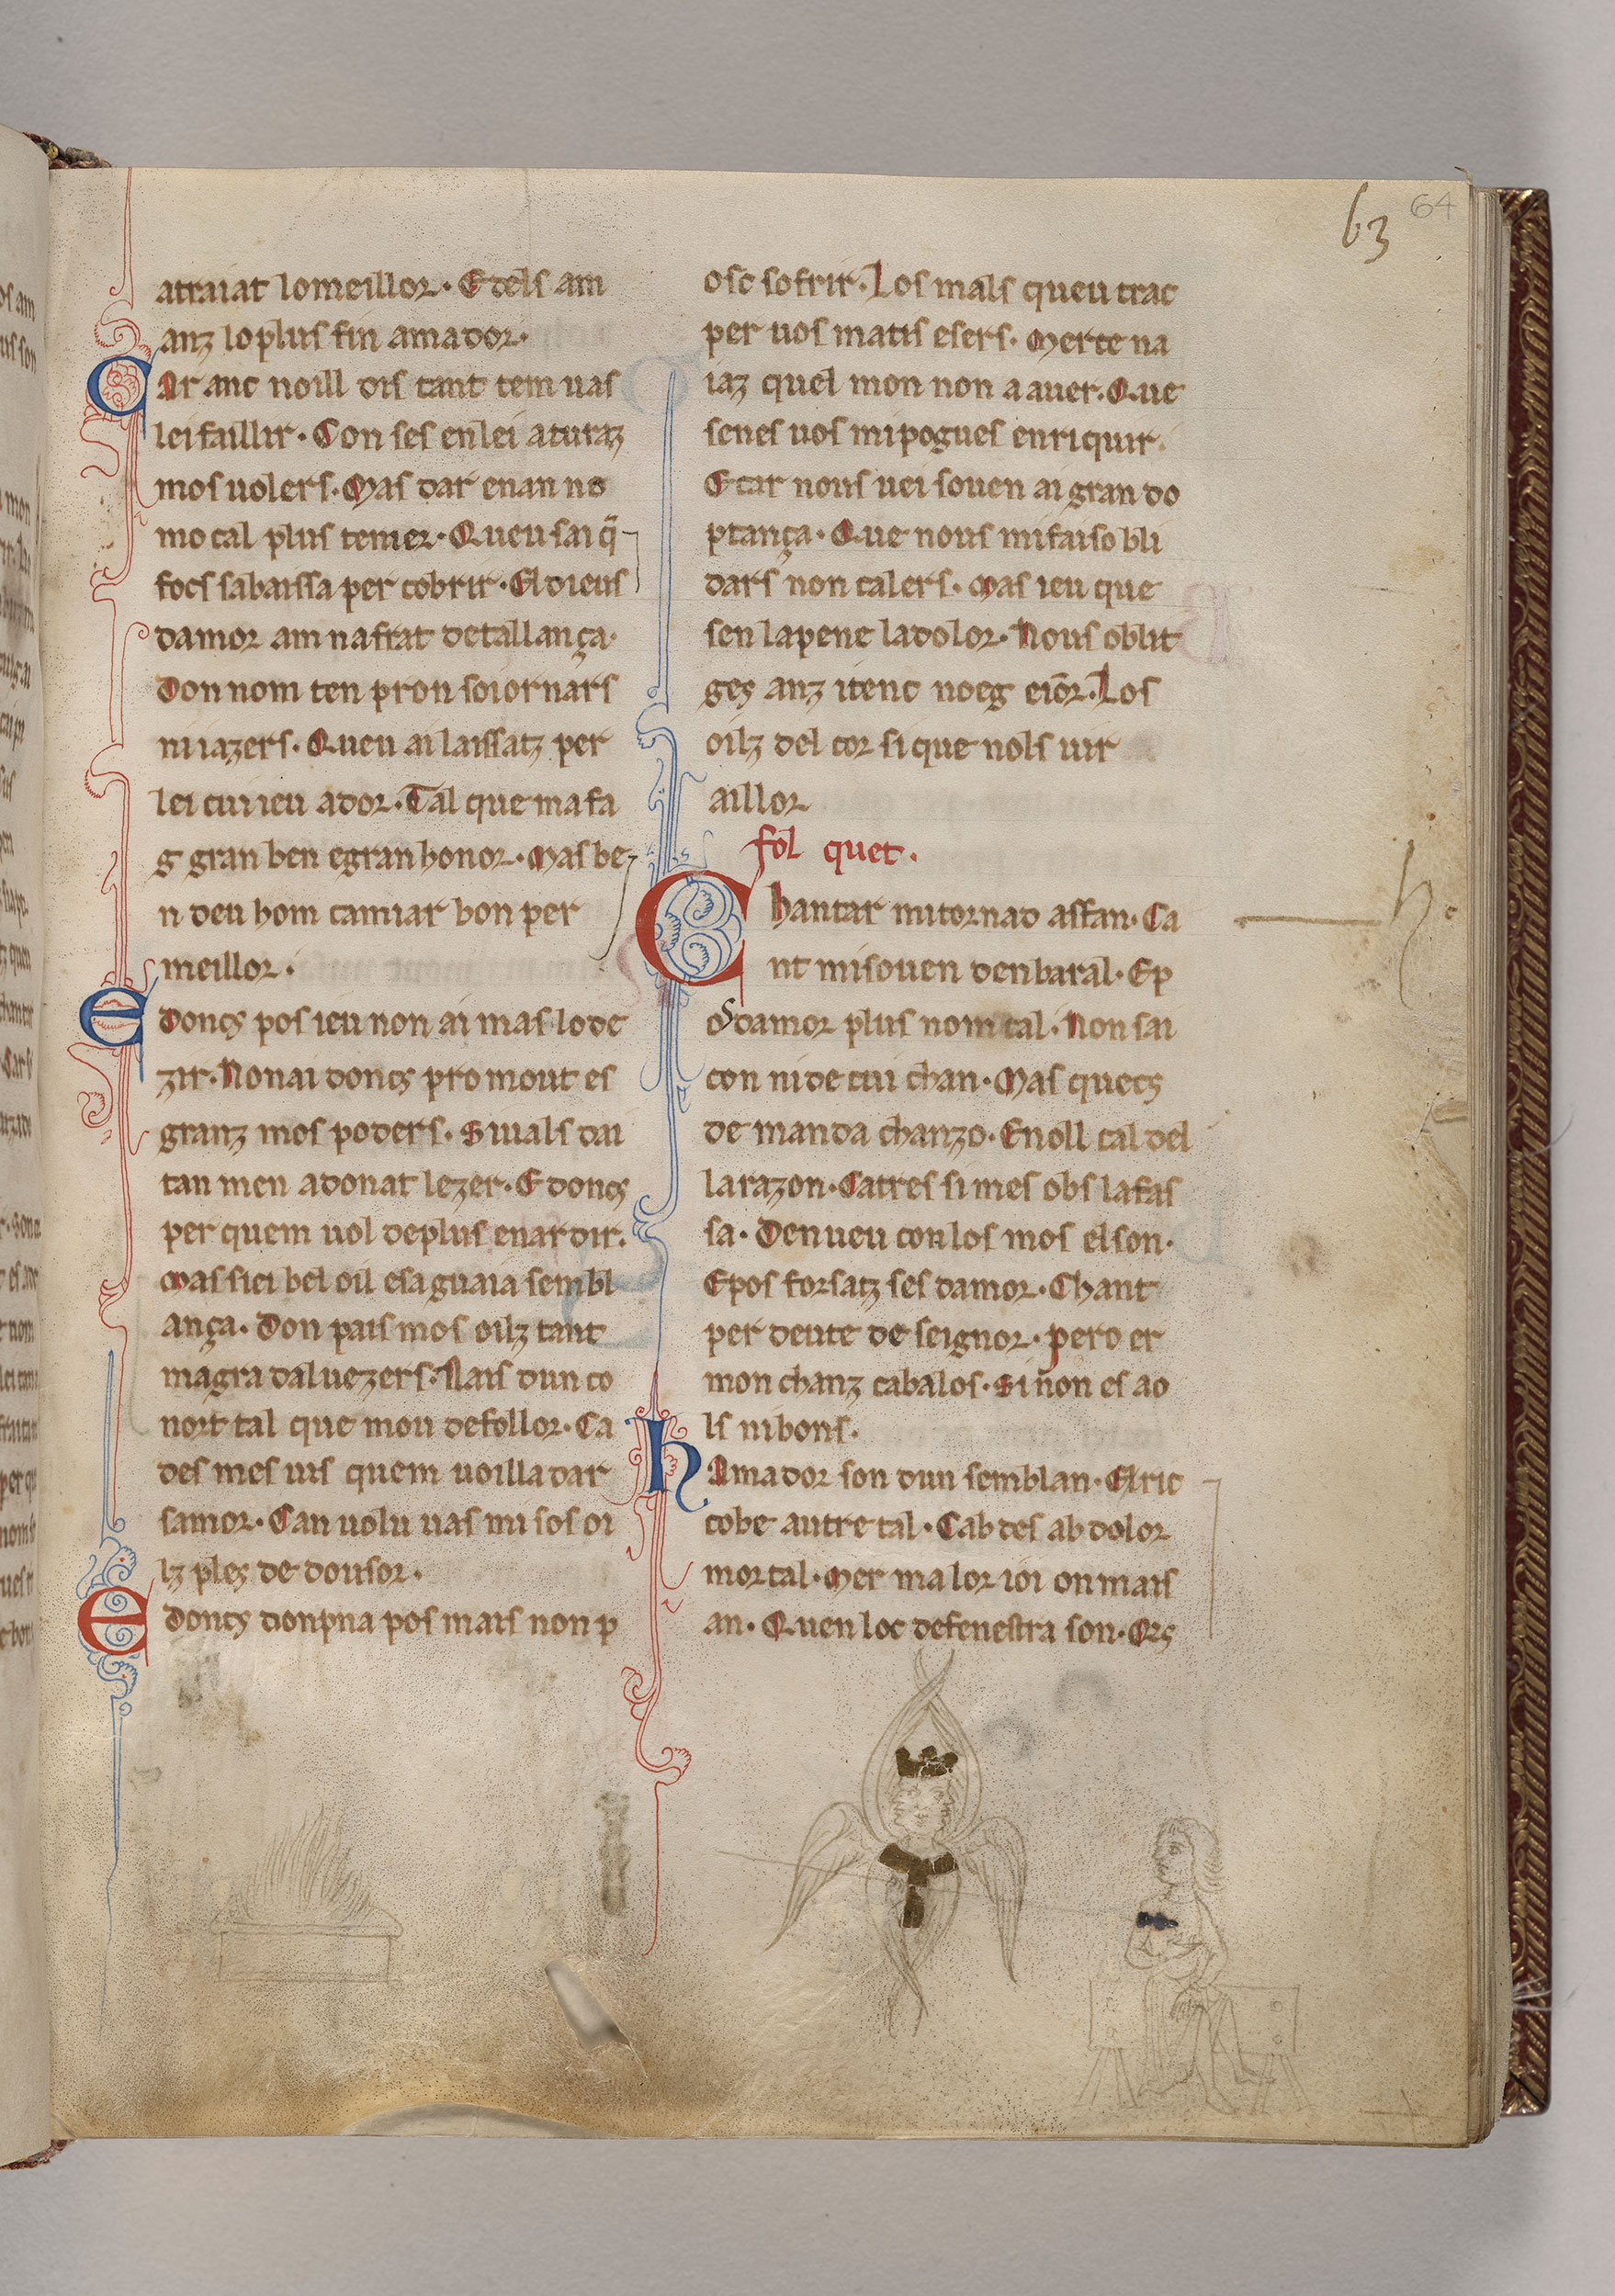 63 64
atraiat lo meillor · E tels am
anz lo plus fin amador ·
Car anc noill dis tant tem uas
lei faillir · Con ses en lei aturaz
mos uolers · Mas dar enan no
mo cal plus temer · Queu sai q̃
focs sabaissa per cobrir · El dieus
damor am nafrat de tal lança ·
Don nom ten pron soiornars
ni iazers · Queu ai laissatz per
lei cui ieu ador · Tal que ma fa
g gran ben e gran honor · Mas be
n deu hom camiar bon per
meillor ·
E doncs pos ieu non ai mas lo de
zir · Non ai doncs pro mout es
granz mos poders · Siuals dai
tan men a donat lezer · E doncs
per quem uol de plus enardir ·
Mas siei bel oil e sa guaia sembl
ança · Don pais mos oilz tant
magradal uezers · Nais dun co
nort tal que mou de follor · Ca
des mes uis quem uoilla dar
samor · Can uolu uas mi sos oi
lz ples de dousor ·
E doncs donpna pos mais non p
osc sofrir · Los mals queu trac
per uos matis e sers · Merce na
iaz quel mon non a auer · Que
senes uos mi pogues enriquir ·
E car nous uei souen ai gran do
ptança · Que nous mi faiso bli
dars non calers · Mas ieu que
sen la pene la dolor · Nous oblit
ges anz i tenc noeg e iõr · Los
oilz del cor si que nols uir
aillor
fol quet ·
Chantar mi tornad affan · Ca
nt mi souen den baral · E p
os damor plus nom cal · Non sai
con ni de cui chan · Mas quecs
demanda chanzo · E noll cal del
la razon · Catres si mes obs la fas
sa · De nueu con los mos el son ·
E pos forsatz ses damor · Chant
per deute de seignor · pero er
mon chanz cabalos · Si non es ao
ls ni bons ·
h Amador son dun semblan · El ric
cobe autretal · Cab des ab dolor
mortal · Mer ma lor ioi on mais
an · Quen loc de fenestra son · Ors